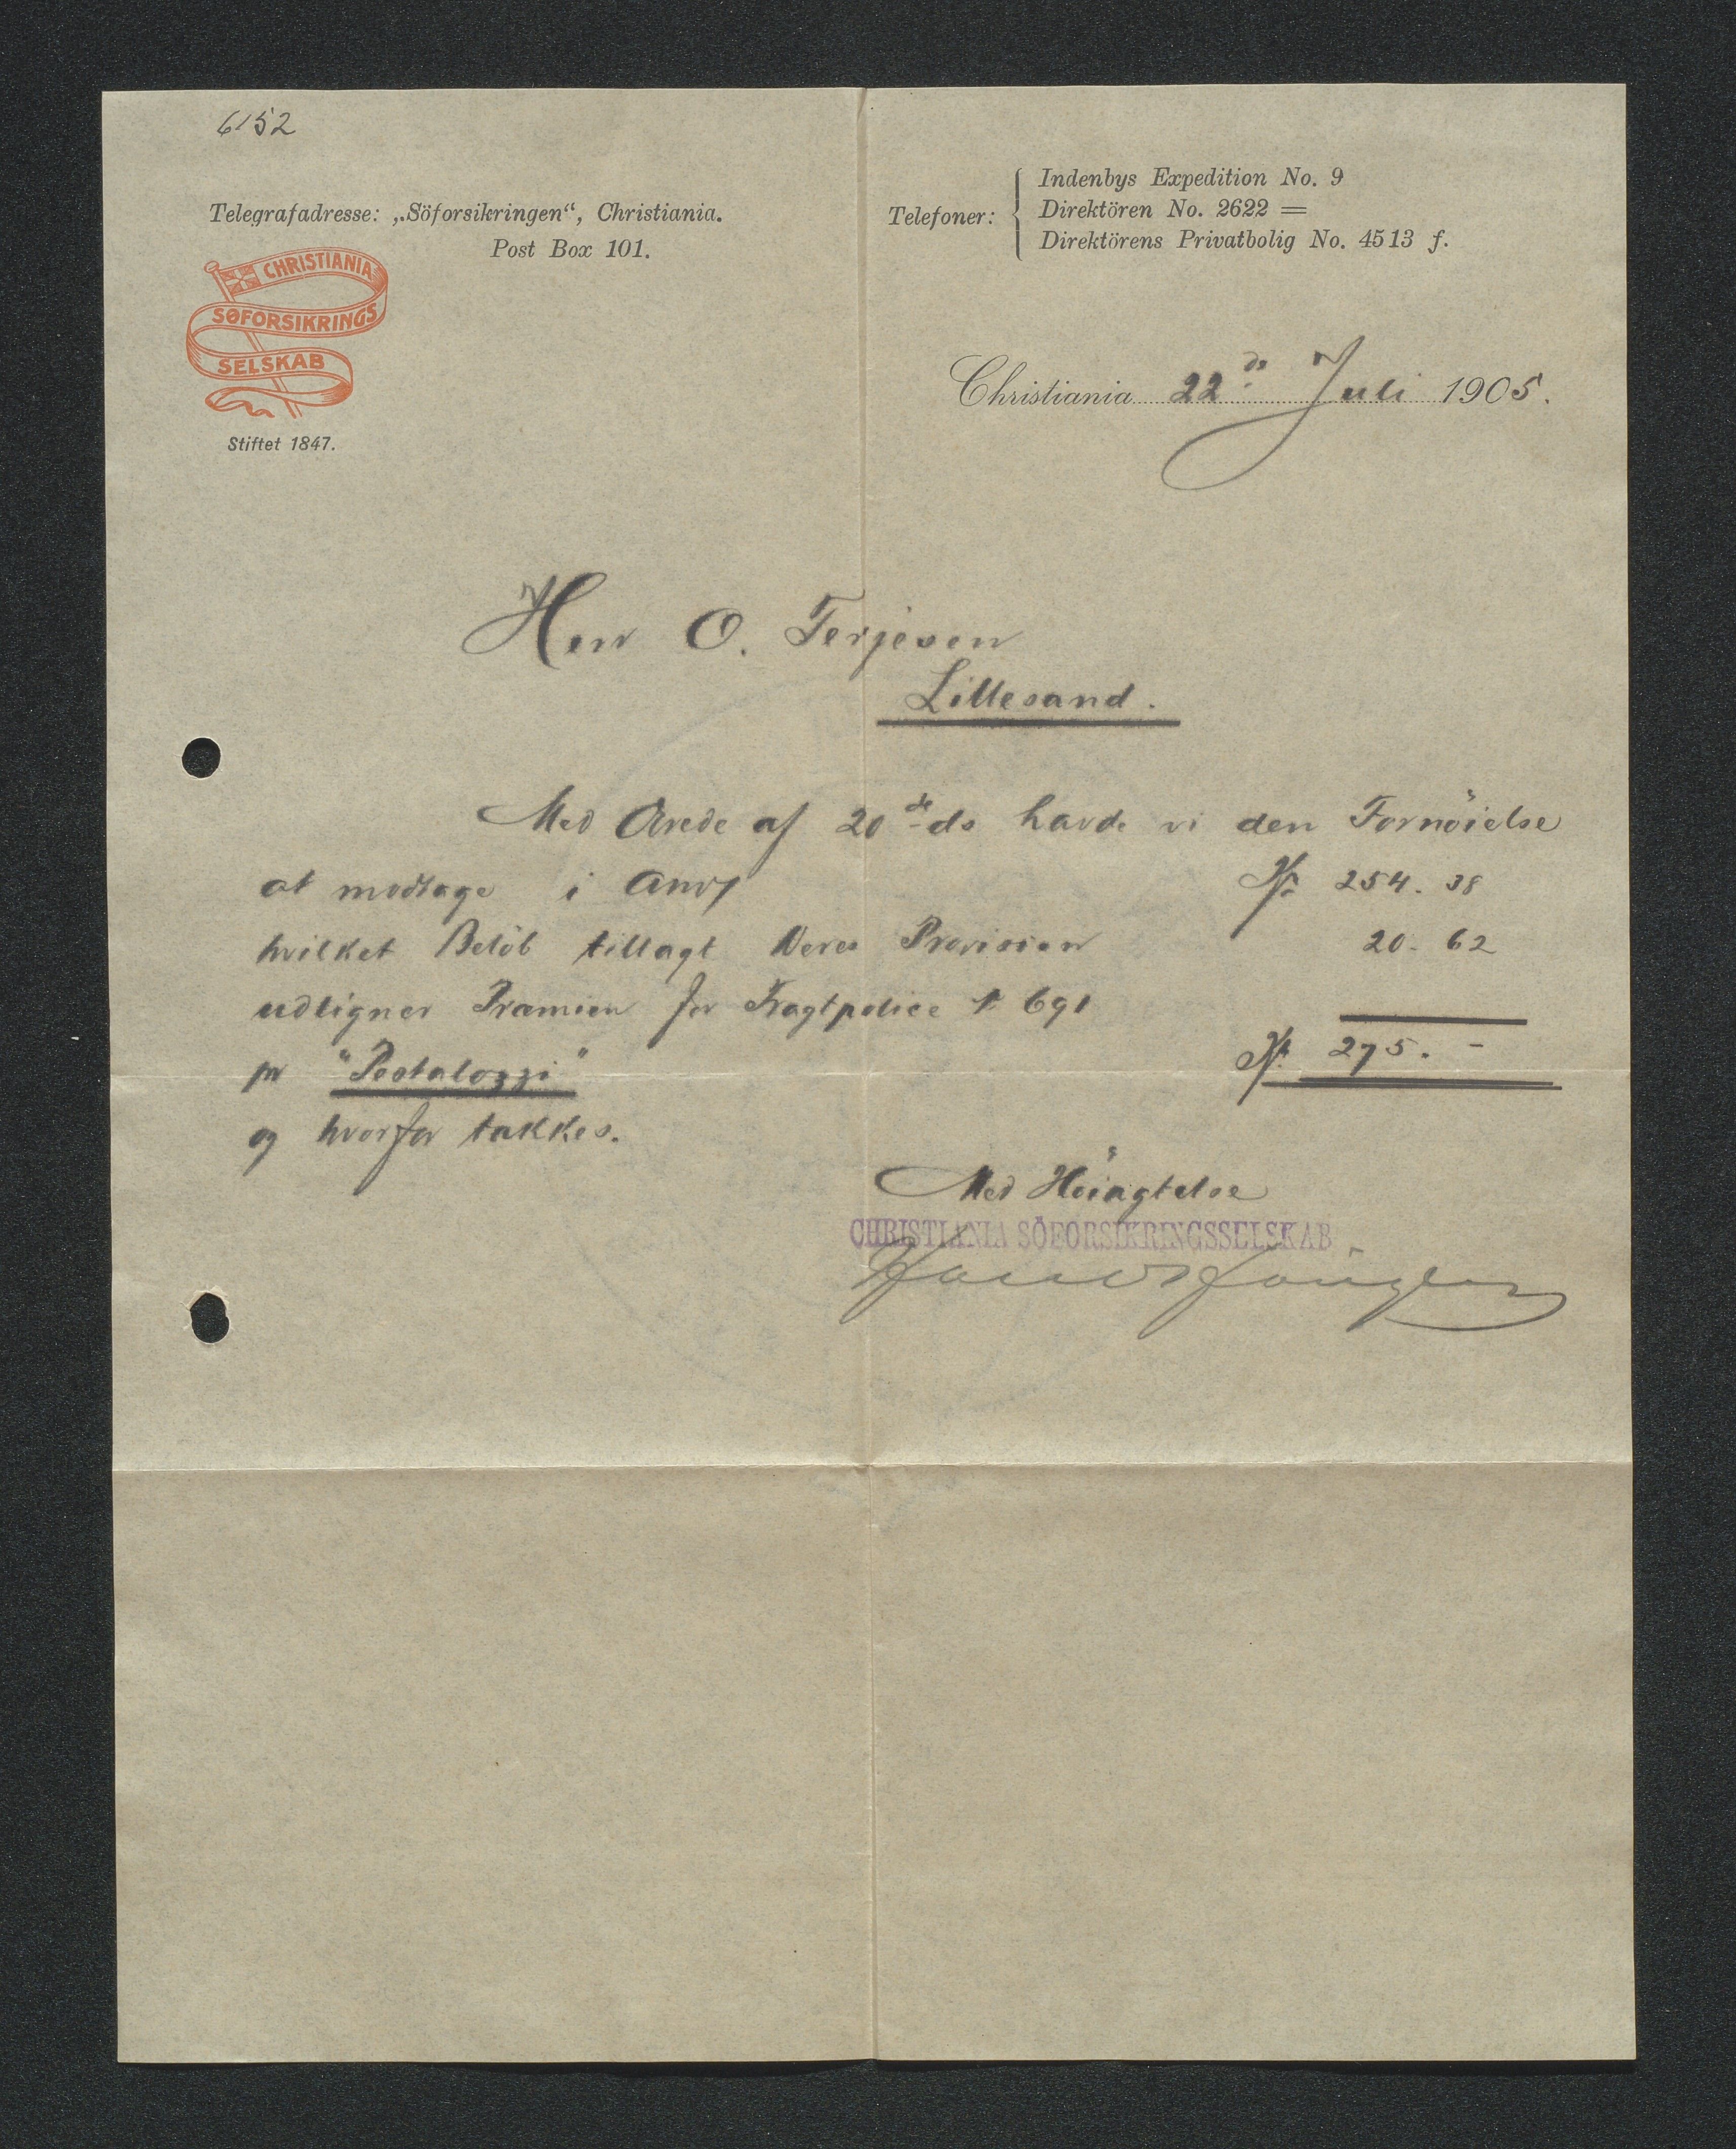 6152
Telegrafadresse: „Söforsikringen“, Christiania.
Post Box 101.
Telefoner:
Indenbys Expedition No. 9
Direktören No. 2622 =
Direktörens Privatbolig No. 4513 f.
CHRISTIANIA
SØFORSIKRINGS
SELSKAB
Stiftet 1847.
Christiania 22de Juli 1905.
Herr O. Terjesen
Lillesand.
Med Ærede af 20de ds havde vi den Fornöielse
at modtage i Anvg Kr 254. 38
hvilket Belöb tillagt Deres Provision 20. 62
udligner Præmien for Fragtpolice № 691
pr "Pestalozzi" Kr 275. -
og hvorfor takkes.
Med Höiagtelse
CHRISTIANIA SÖFORSIKRINGSSELSKAB